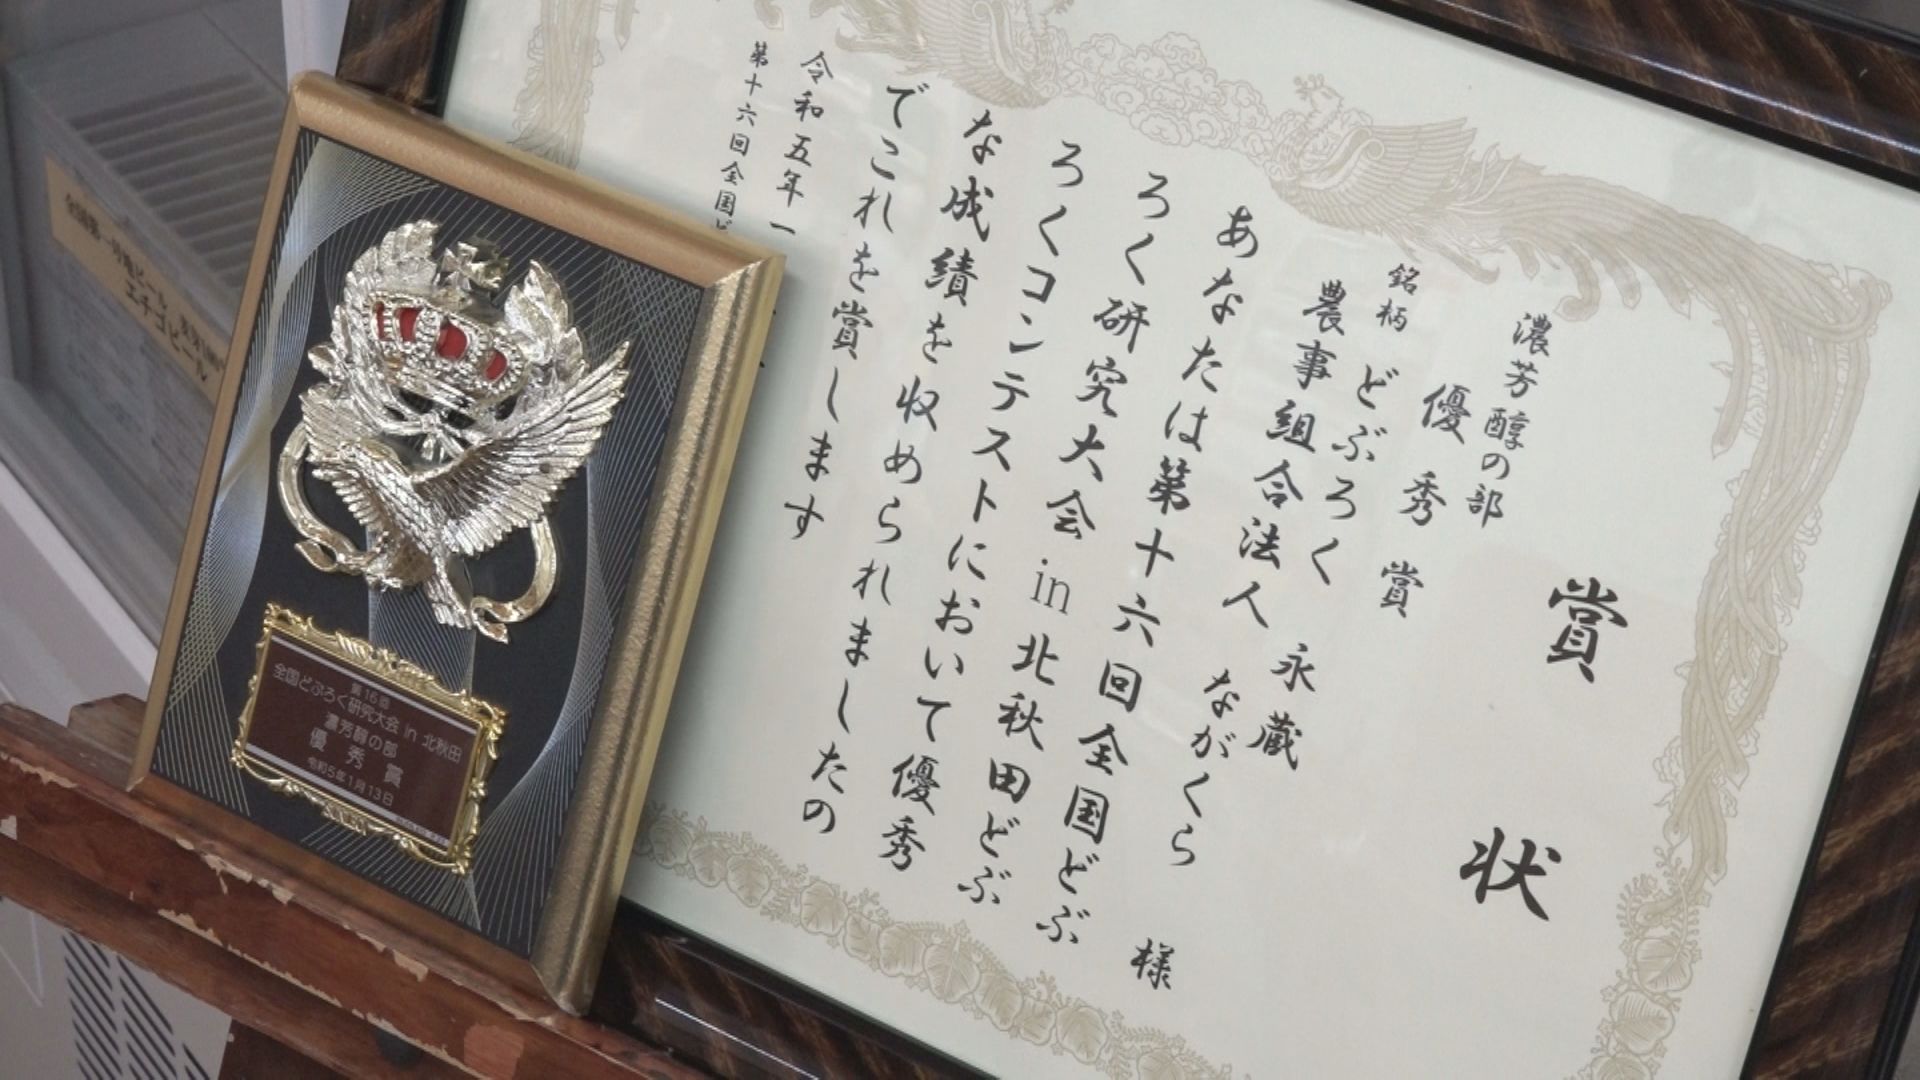 賞状
濃芳醇の部
優秀賞
銘柄 どぶろく
農事組合法人 永蔵
ながくら 様
あなたは第十六回全国どぶ
ろく研究大会in北秋田どぶ
ろくコンテストにおいて優秀
な成績を収められましたの
でこれを賞します
令和五年一
第十六回全国ど
第16回
全国どぶろく研究大会 in 北秋田
濃芳醇の部
優秀賞
令和5年1月13日
全国第一号地ビール
エチゴビール